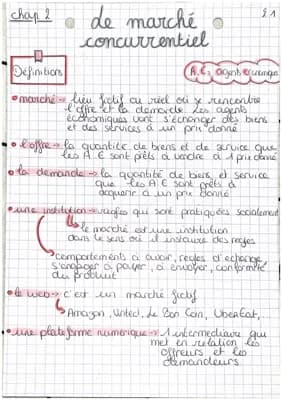 chap 2
2.1
le marché
concurrentiel
Définitions
A.E = agents économiques
• marché → lieu fictif ou réel où se rencontre
l'offre et la demande les agents
économiques vont s'échanger des biens
et des services à un prix donné
• l'offre → la quantité de biens et de service que
les A.E sont prêts à vendre à 1 prix donné
• la demande → la quantité de biens et service
que les A.E sont prêts à
acquérir à un prix donné
• une institution → règles qui sont pratiquées socialement
le marché est une institution
dans le sens où il instaure des règles
comportements à avoir, règles d'échange
s'engager à payer, à envoyer, conformité
du produit
• le web → c'est un marché fictif
Amazon, Vinted, Le Bon Coin, UberEat,..
• une plateforme numérique → 1 intermédiaire qui
met en relation les
offreurs et les
demandeurs